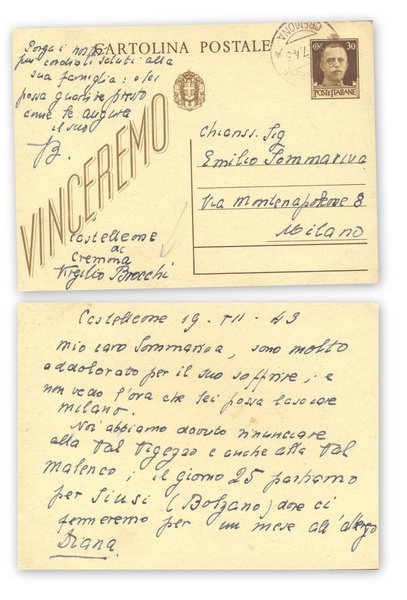 Porga i nostri
CARTOLINA POSTALE
più cordiali saluti alla
sua famiglia: e lei
possa guarire presto
come le augura
il suo
B.
CREMONA
30
POSTE ITALIANE
VINCEREMO
Chiariss. Sig
Emilio Sommariva
Via Montenapoleone 8
Milano
Castelleone
di
Cremona
Virgilio Brocchi
Castelleone 19 - VII - 43
mio caro Sommariva, sono molto
addolorato per il suo soffrire; e
non vedo l'ora che lei possa lasciare
milano.
Noi abbiamo dovuto rinunciare
alla Val Vigezzo e anche alla Val
Malenco; il giorno 25 partiamo
per Siusi (Bolzano) dove ci
fermeremo per un mese all'albergo
Diana.